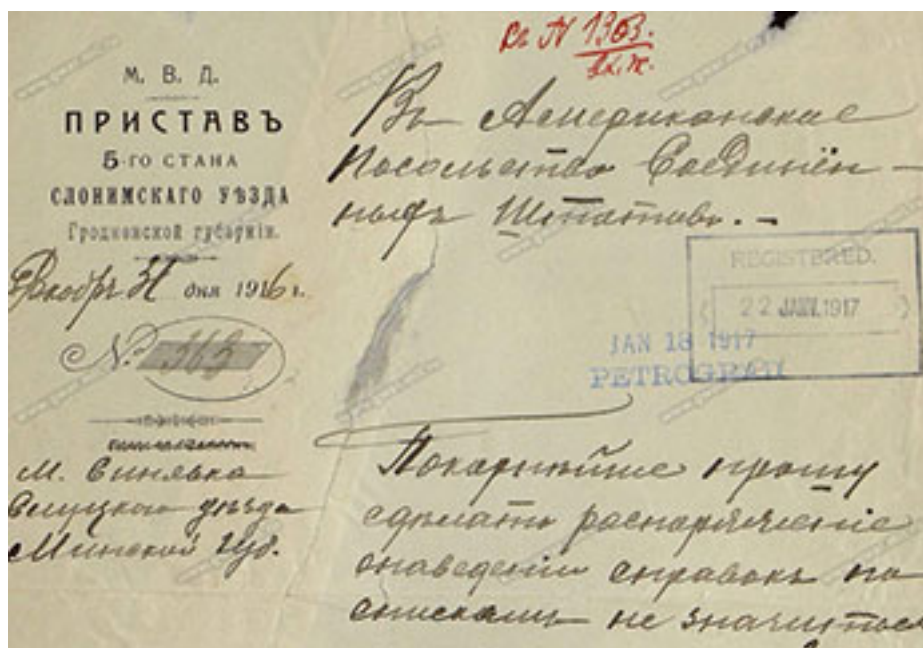 къ № 1303.
М. В. Д.
ПРИСТАВЪ
5-го СТАНА
СЛОНИМСКАГО УѢЗДА
Гродненской губернiи.
Декабря 31 дня 1916 г.
№ 363
М. Синявка
Слуцкаго уѣзда
Минской губ.
Въ Американское
Посольство Соединён-
ныхъ Штатовъ. –
REGISTERED.
22 JANV. 1917
JAN 18 1917
PETROGRAD
Покорнѣйше прошу
сдѣлать распоряженiе
о наведенiи справокъ по
спискамъ не значится